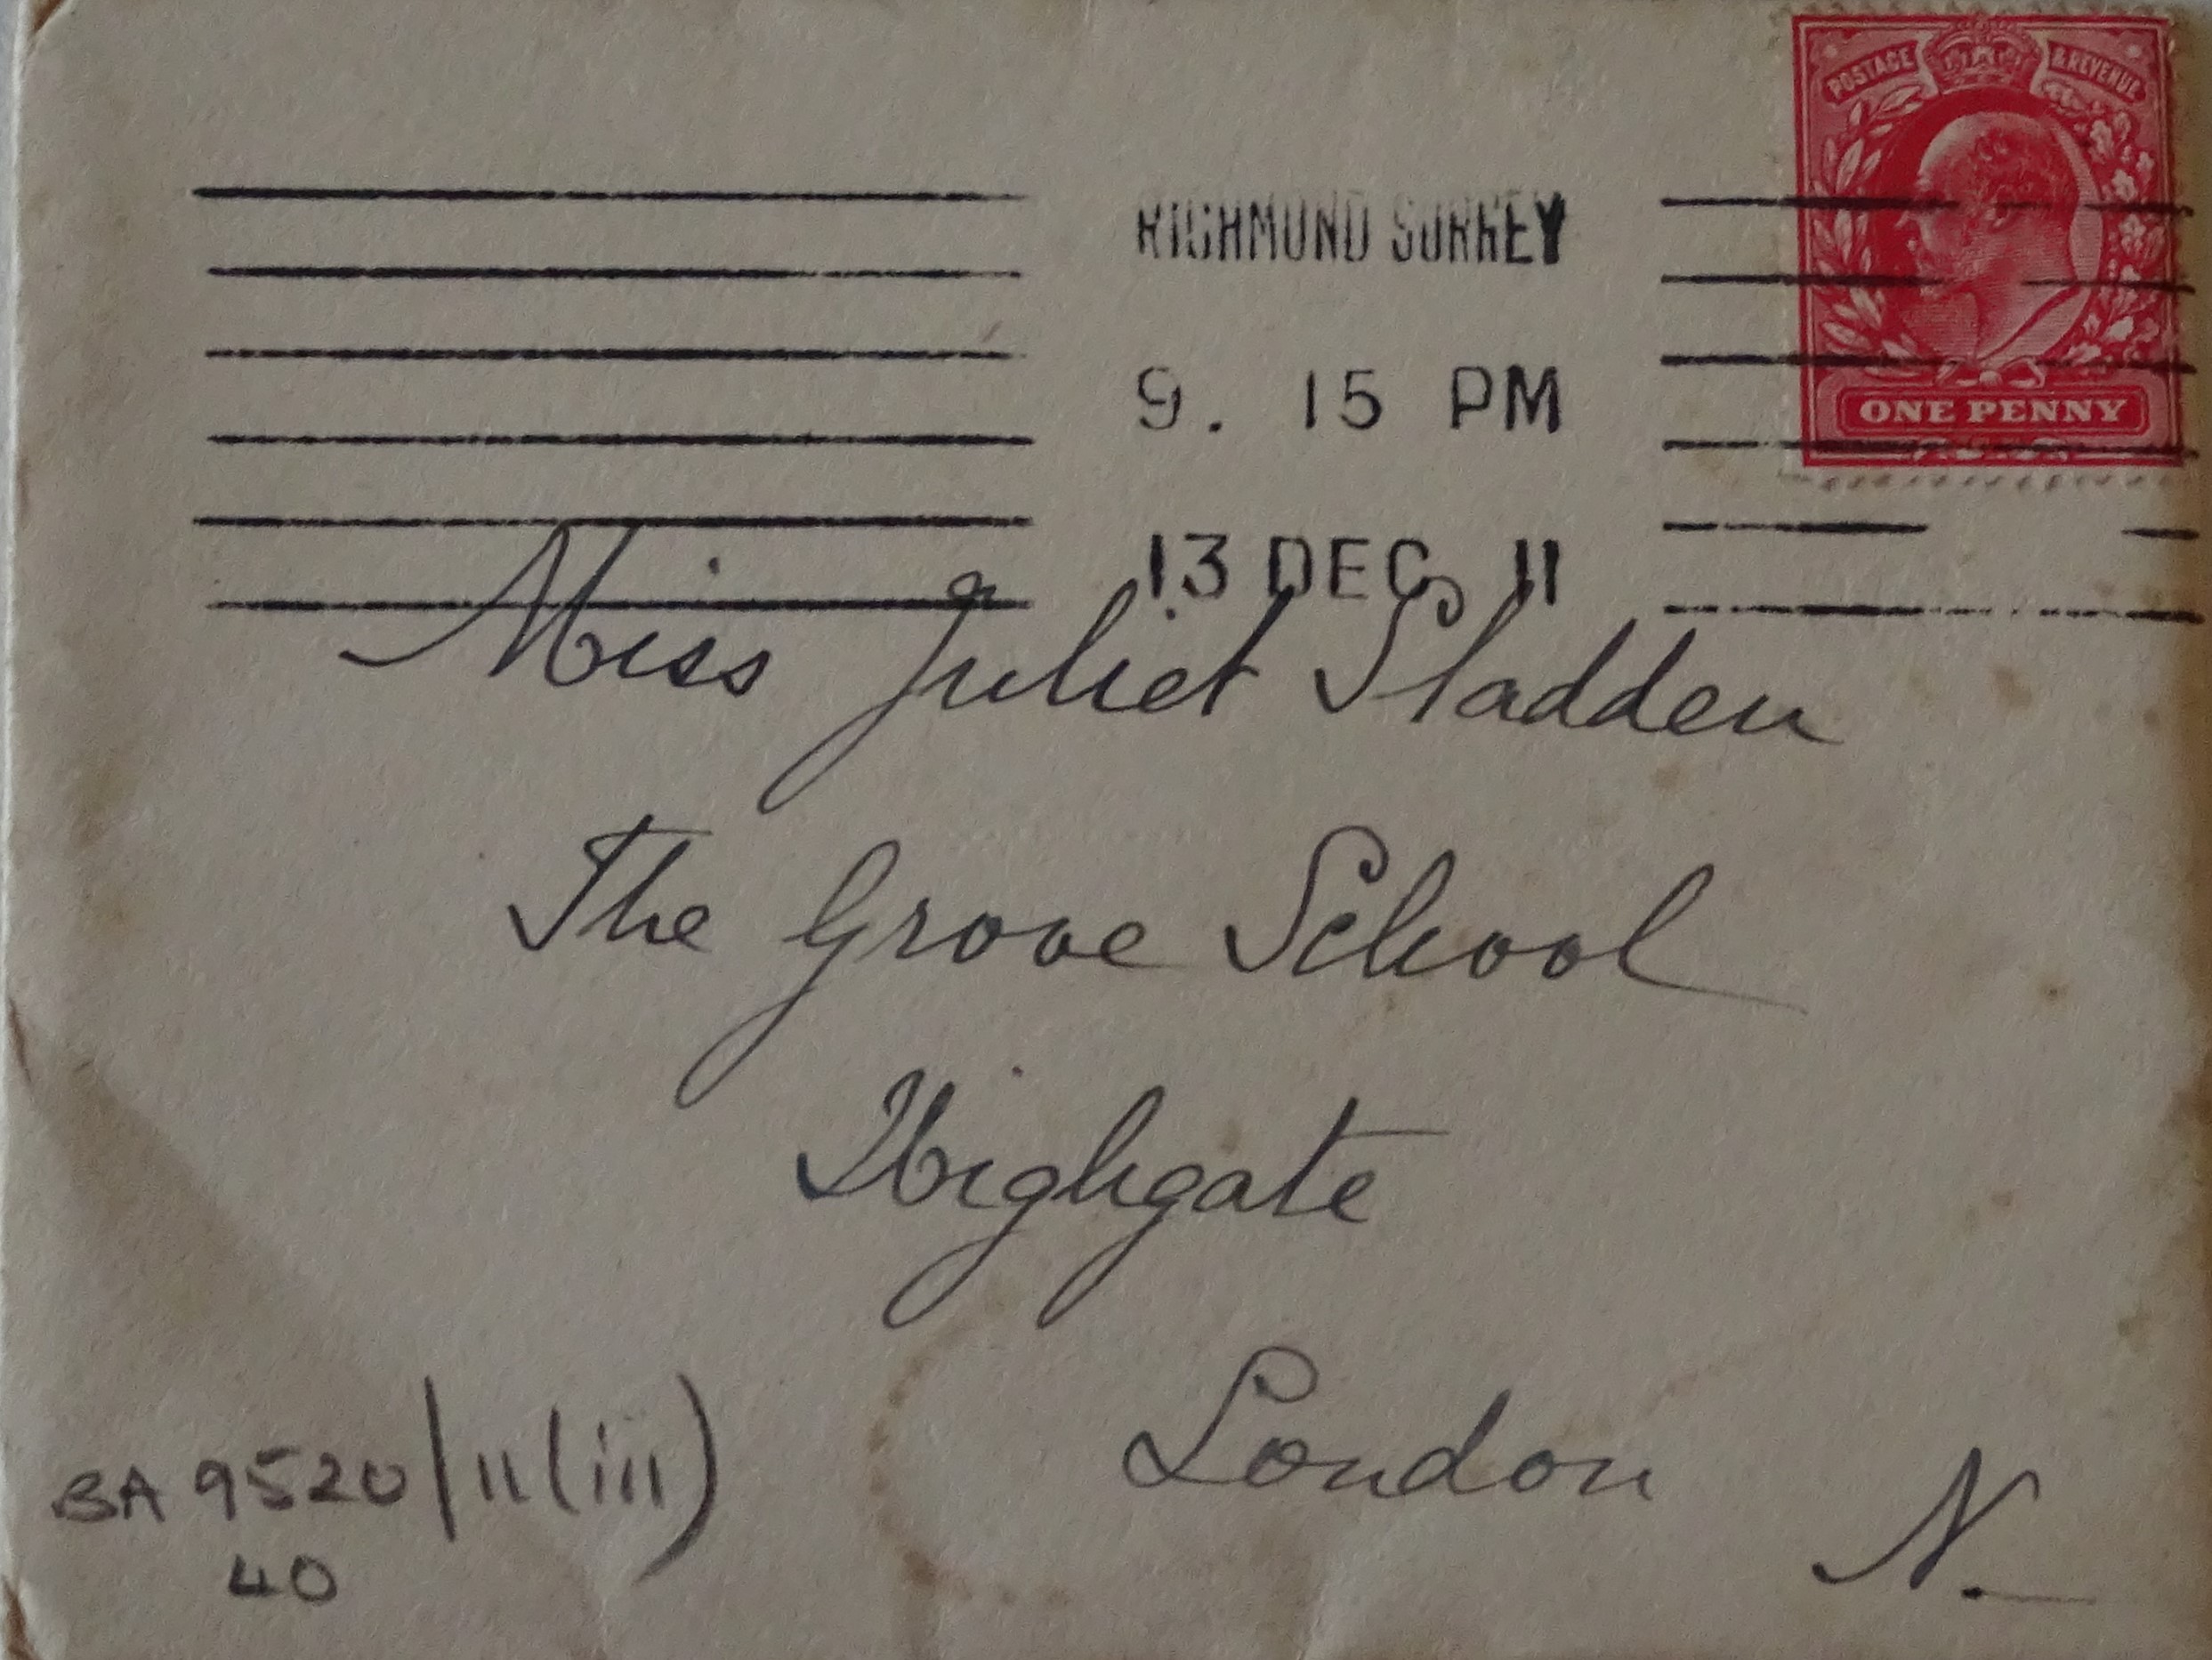 POSTAGE & REVENUE
ONE PENNY
RICHMOND SURREY
9. 15 PM
13 DEC 11
Miss Juliet Sladden
The Grove School
Highgate
London
N.
BA 9520/11(iii)
40